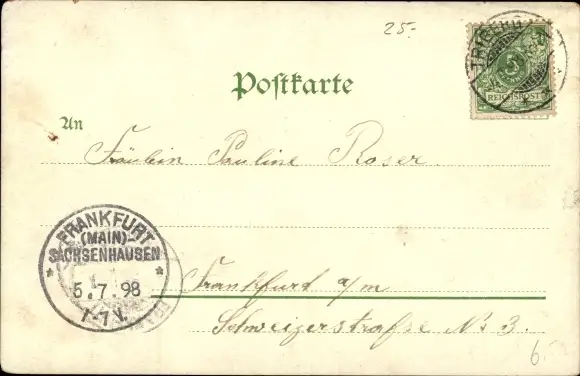 25.-
TRIBERG
REICHSPOST
Postkarte
An
Fräulein Pauline Roser.
FRANKFURT
(MAIN)-
SACHSENHAUSEN
* 5.7.98 *
Frankfurt a/m
Schweizerstraße No 3.
6.-